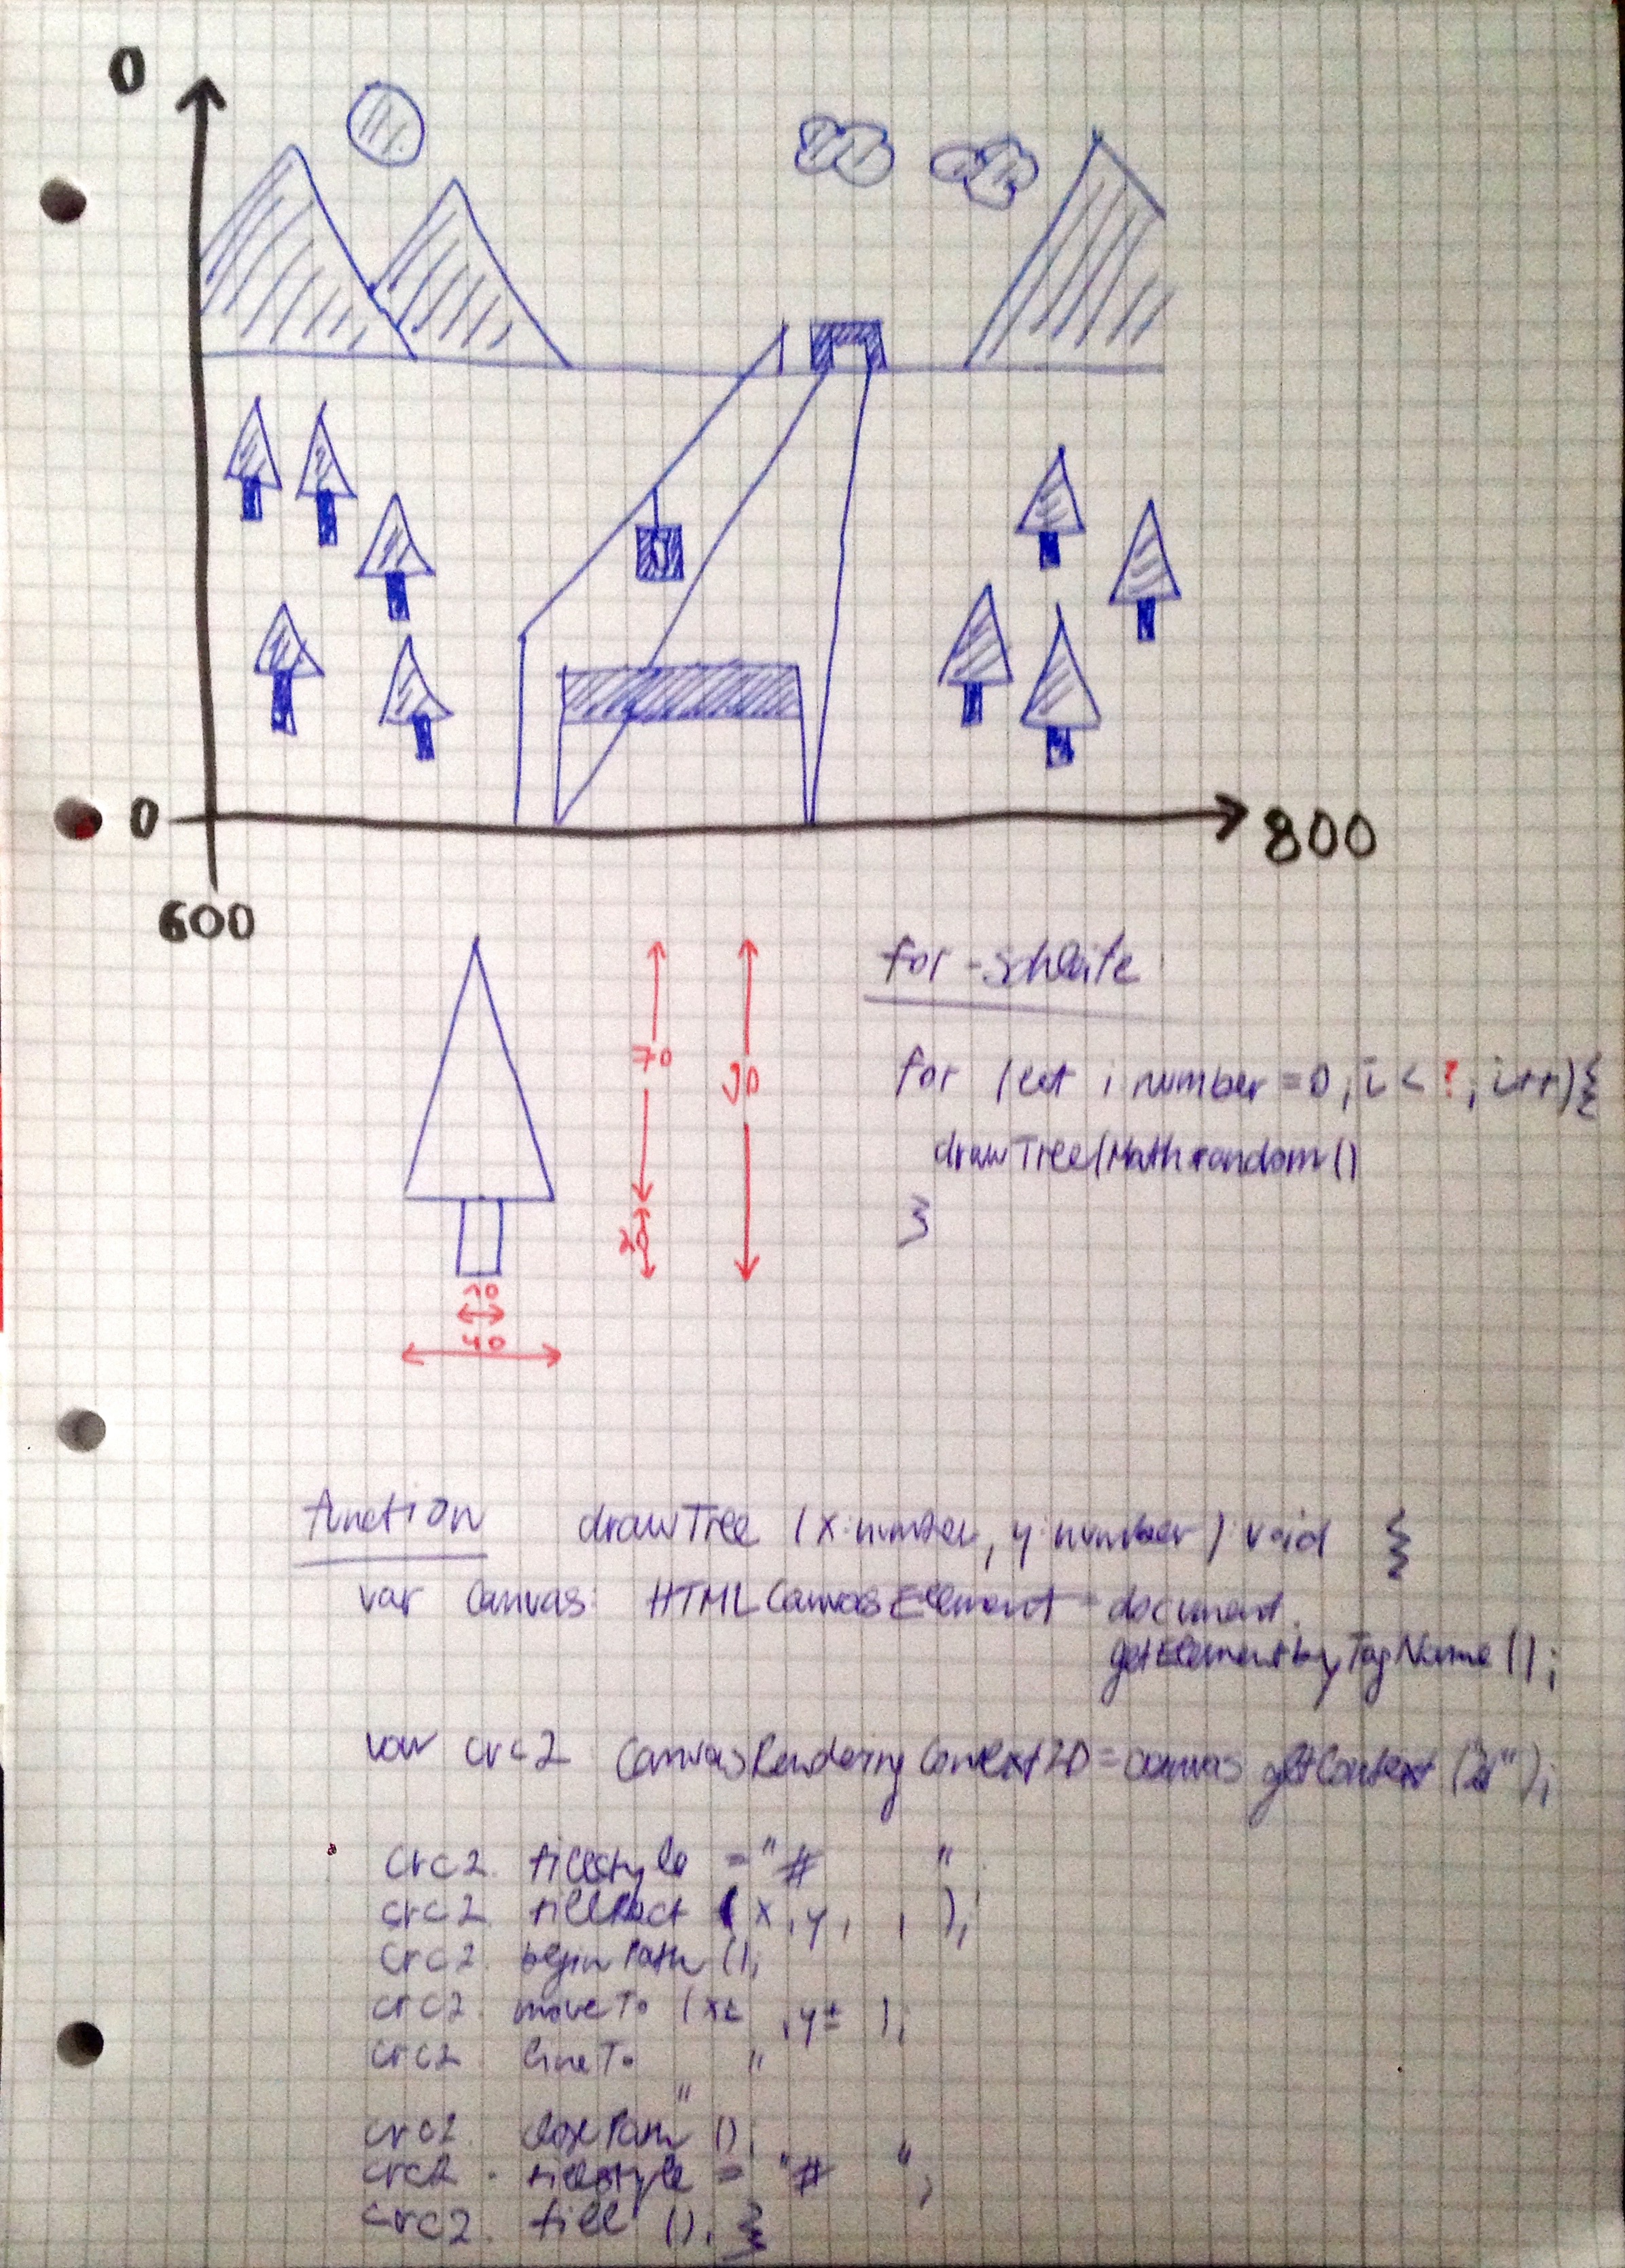 0
0
800
600
70
90
20
10
40
for-schleife
for (let i number = 0; i < ?; i++) {
drawTree(Math random()
}
function drawTree (x: number, y: number) void {
var canvas: HTMLCanvasElement = document.
getElementbyTagName();
var crc2 CanvasRenderingContext2D = canvas getContext ("2d");
crc2. fillStyle = "# "
crc2. fillRect (x, y, , );
crc2. beginPath ();
crc2. moveTo (x± , y± );
crc2. lineTo "
"
crc2. closePath ();
crc2. fillstyle = "# ";
crc2. fill (). }